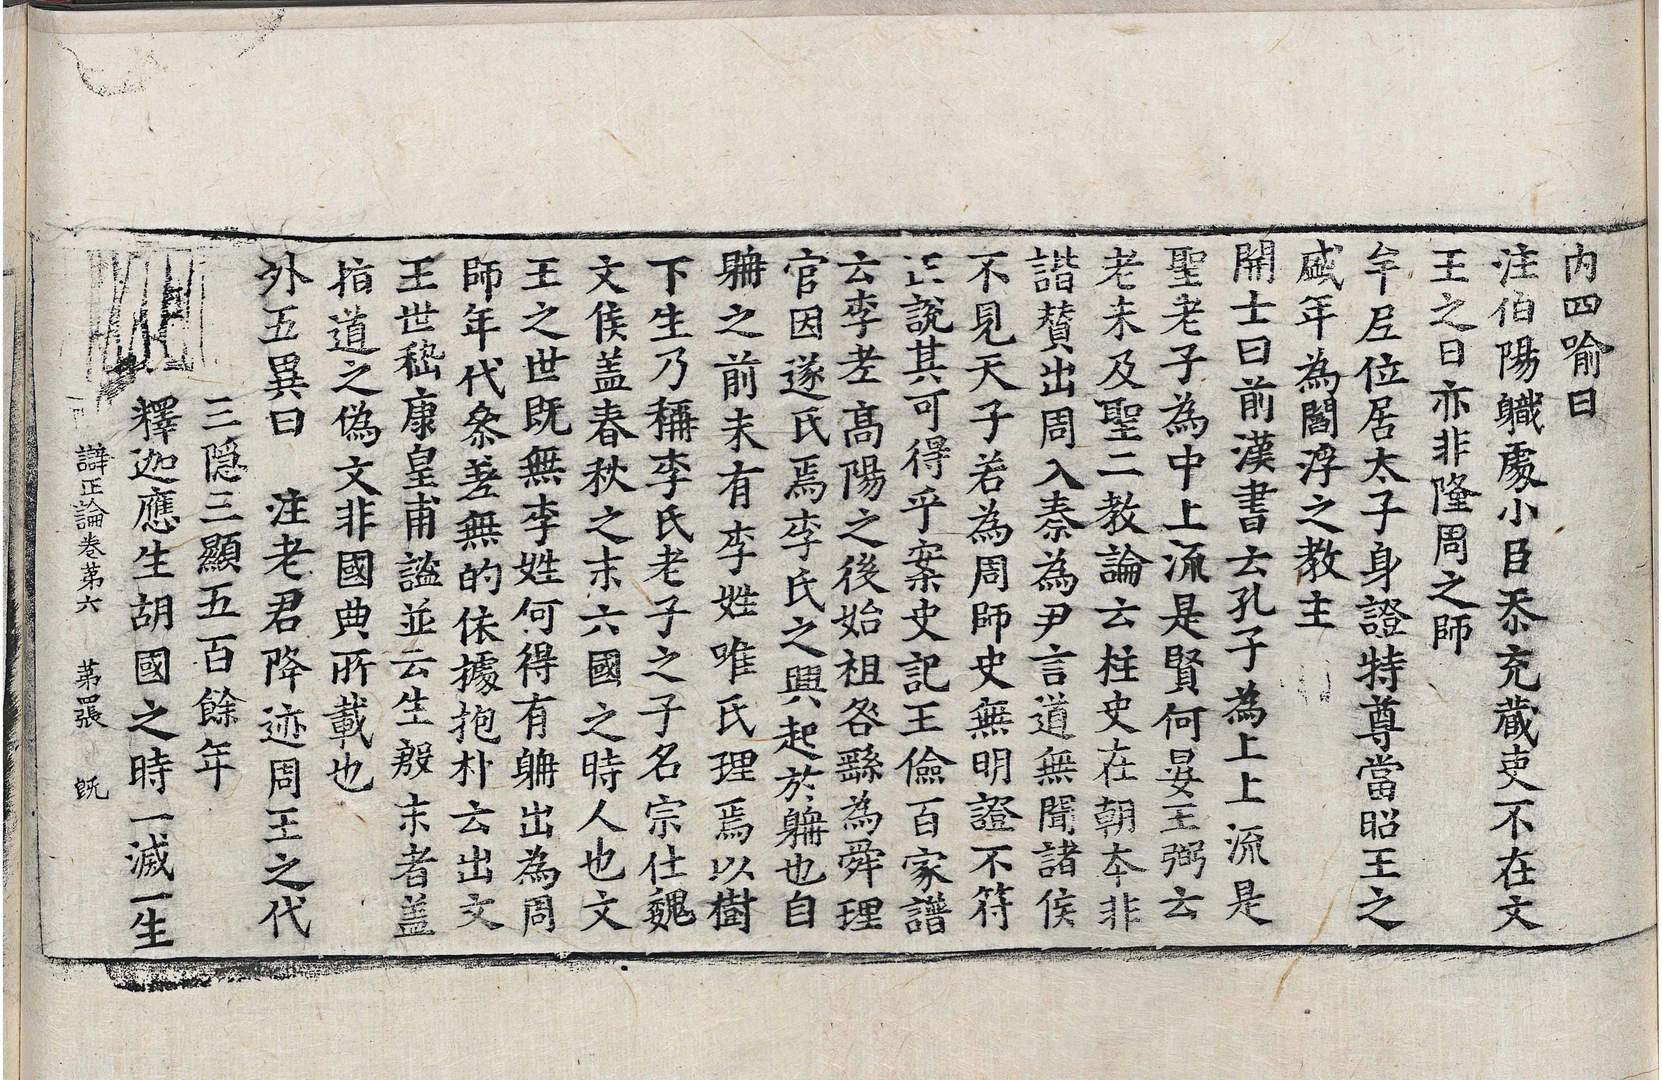 内四喻曰
注伯陽職處小臣忝充藏吏不在文
王之日亦非隆周之師
牟尼位居太子身證特尊當昭王之
盛年為閻浮之教主
開士曰前漢書云孔子為上上流是
聖老子為中上流是賢何晏王弼云
老未及聖二教論云柱史在朝本非
諧賛出周入秦為尹言道無聞諸侯
不見天子若為周師史無明證不符
正說其可得乎案史記王儉百家譜
云李老高陽之後始祖咎繇為舜理
官因遂氏焉李氏之興起於耼也自
耼之前未有李姓唯氏理焉以樹
下生乃稱李氏老子之子名宗仕魏
文侯盖春秋之末六國之時人也文
王之世既無李姓何得有耼出為周
師年代叅差無的依據抱朴云出文
王世嵇康皇甫謐並云生殷末者盖
指道之偽文非國典所載也
外五異曰　注老君降迹周王之代
三隱三顯五百餘年
釋迦應生胡國之時一滅一生
辯正論卷第六　第四張　既